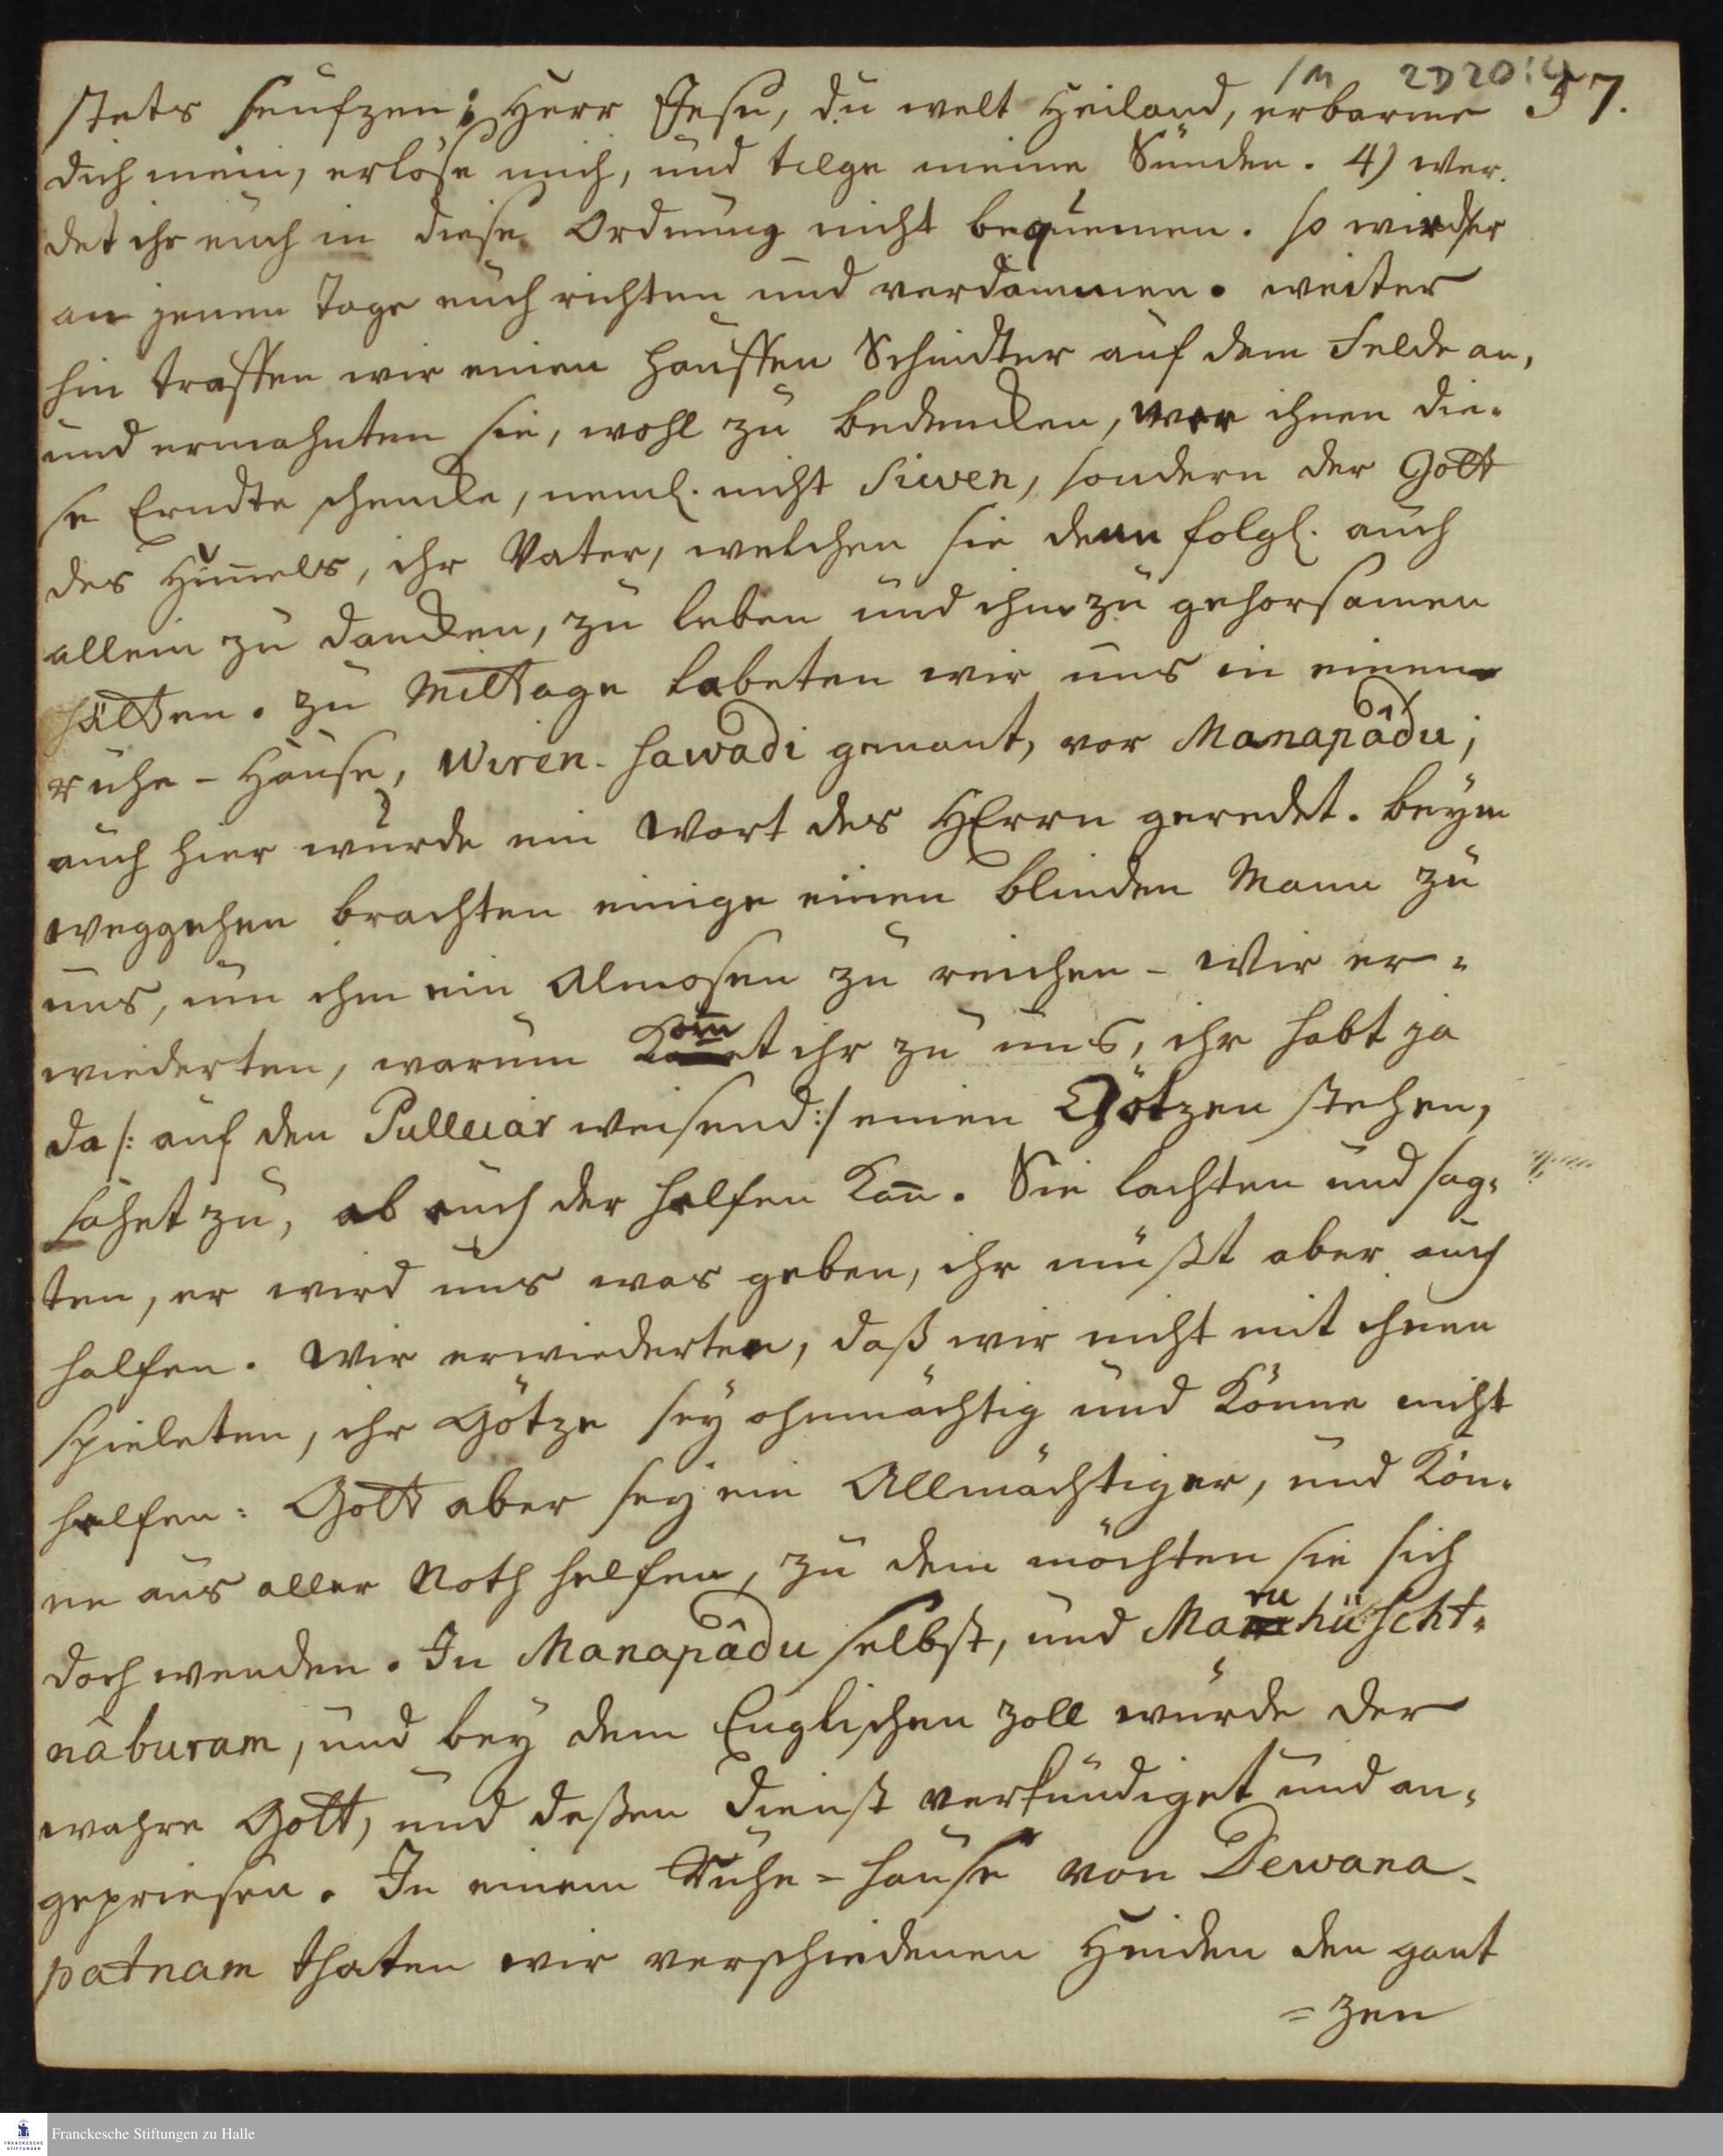 1M 2D20:4 57.
stets seufzen: Herr Jesu, du welt Heiland, erbarme
dich mein, erlöse mich, und tilge meine Sünden. 4) Wer-
det ihr euch in diese Ordnung nicht bequemen. so wird er
an jenem Tage euch richten und verdammen. weiter
hin traffen wir einen Hauffen Schnidter auf dem Felde an,
und ermahnten sie, wohl zu bedencken, wer ihnen die-
se Erndte schencke, neml. nicht Siwen, sondern der Gott
des Him̅els, ihr Vater, welchen sie denn folgl. auch
allein zu dancken, zu leben und ihm zu gehorsamen
hätten. Zu Mittage labeten wir uns in einem
ruhe-Hause, Wiren-Sawadi genant, vor Manapâdu;
auch hier wurde ein Wort des HErrn geredet. Beym
weggehen brachten einige einen blinden Mann zu
uns, um ihm ein Almosen zu reichen - Wir er-
wiederten, warum kom̅t ihr zu uns, ihr habt ja
da /: auf den Pulleiar weisend :/ einen Götzen stehen,
sehet zu, ob euch der helfen kan̅. Sie lachten und sag-
ten, er wird uns was geben, ihr müßt aber auch
helfen. Wir erwiederten, daß wir nicht mit ihnen
spieleten, ihr Götze sey ohnmächtig und könne nicht
helfen: Gott aber sey ein Allmächtiger, und kön-
ne aus aller Noth helfen, zu dem möchten sie sich
doch wenden. In Manapâdu selbst, und Maruhüscht-
nâburam, und bey dem Englischen Zoll wurde der
wahre Gott, und deßen Dienst verkündiget und an-
gepriesen. In einem Ruhe-hause von Dewana-
patnam thaten wir verschiedenen Heiden den gant
=zen
Franckesche Stiftungen zu Halle